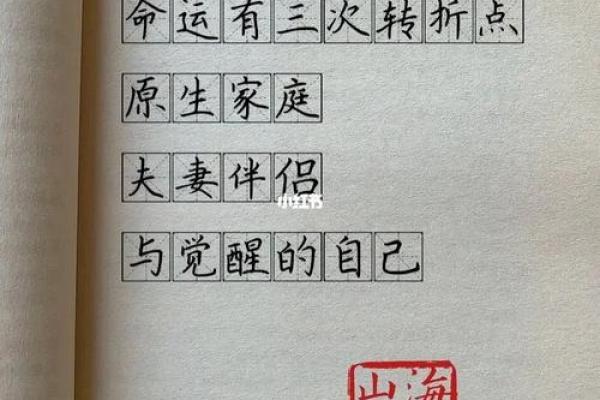 命运有三次转折点
原生家庭
夫妻伴侣
小红书
与觉醒的自己
山海